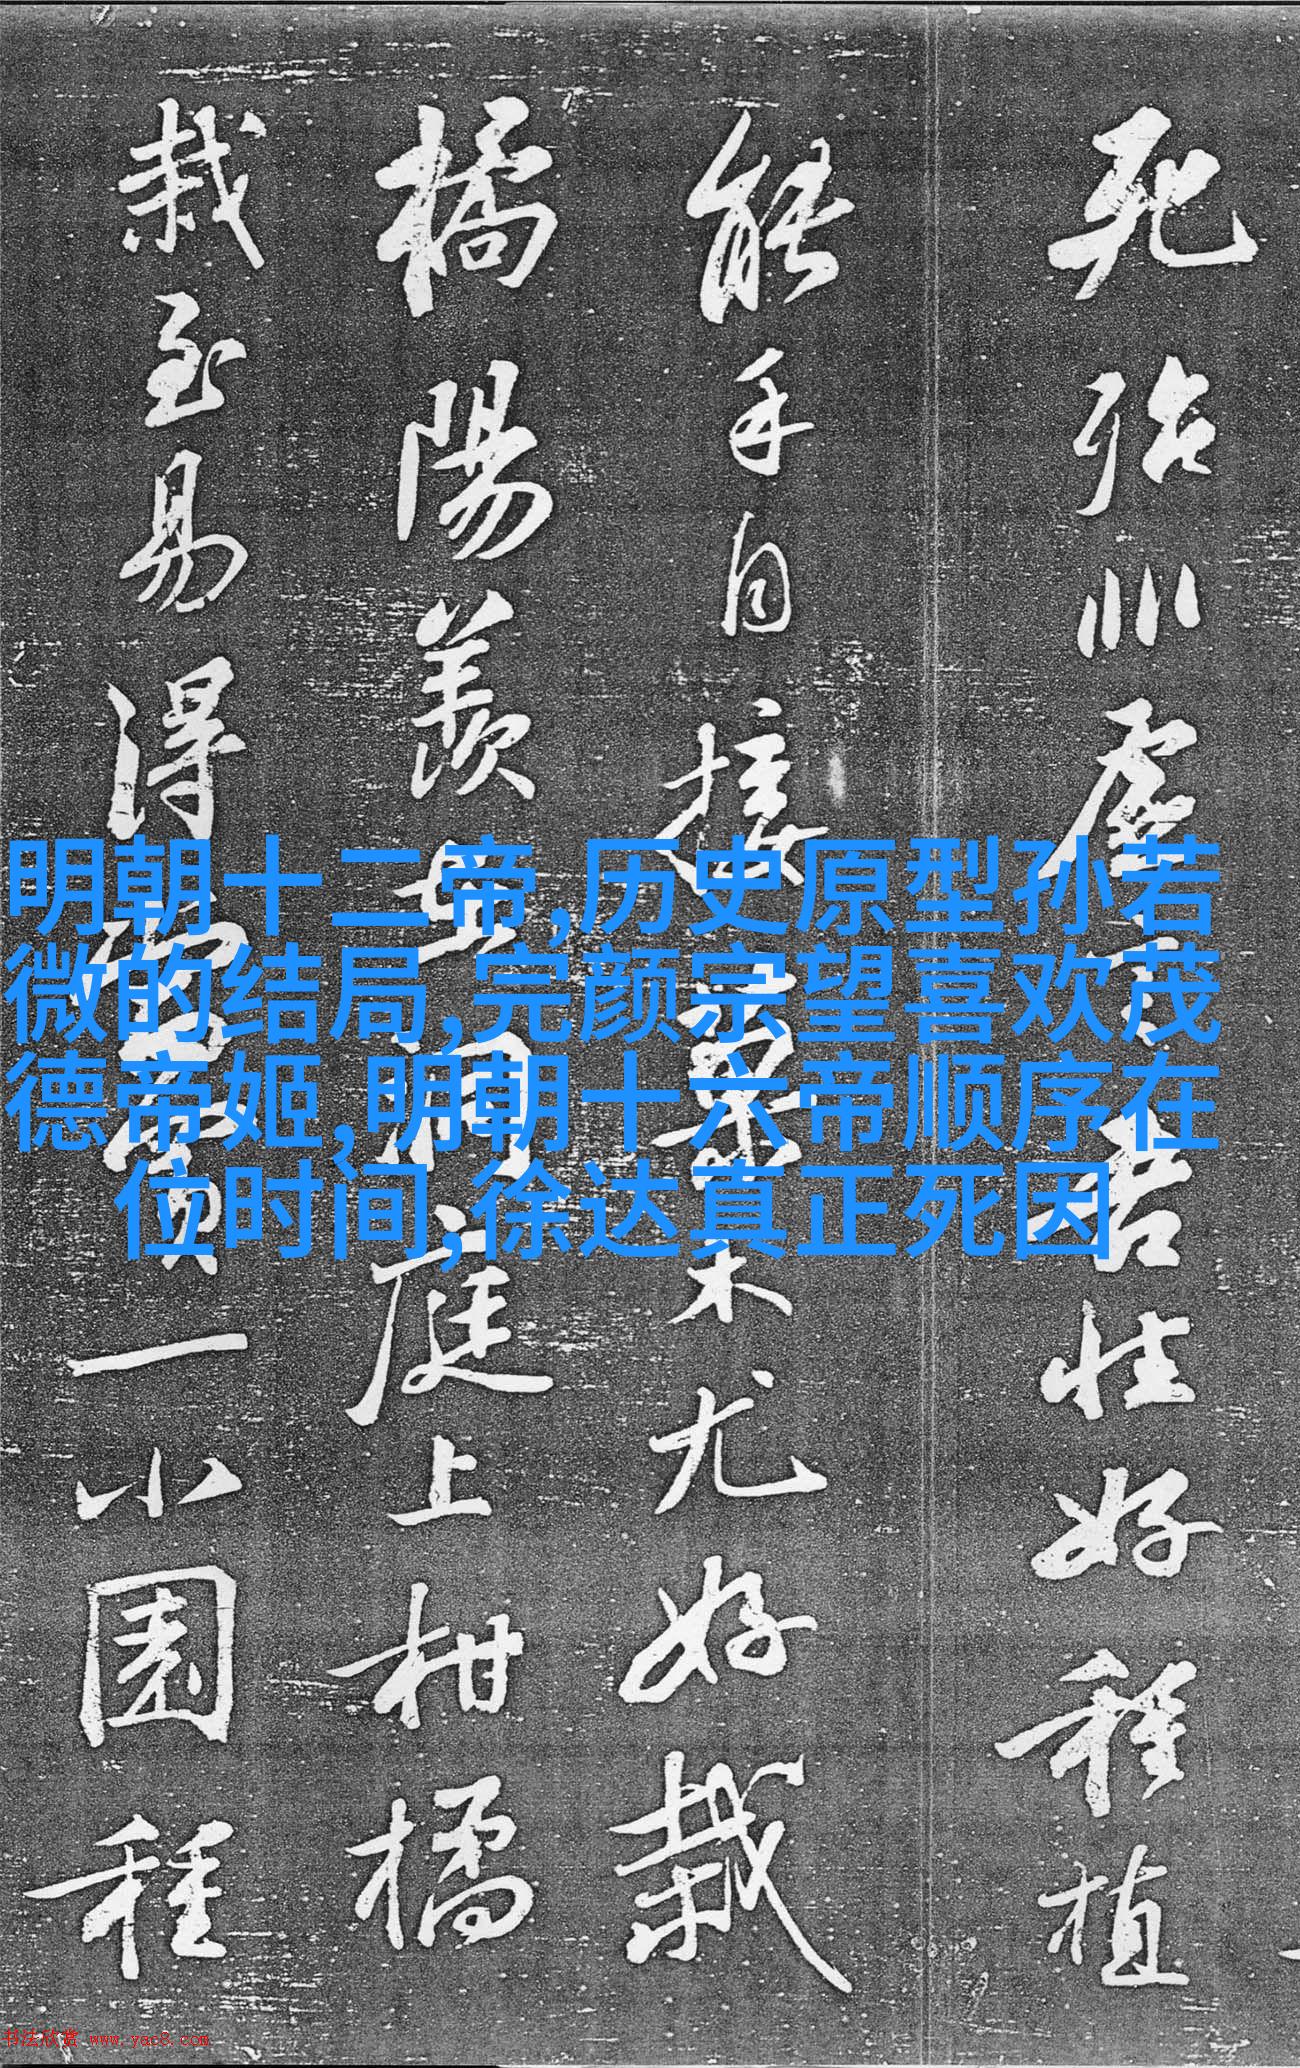 死殆非虛言吾性好種植
能手自接果木尤好栽
橘陽羨在洞庭上柑橘
栽至易得當買一小園種
明朝十二帝,历史原型孙若
微的结局,完颜宗望喜欢茂
德帝姬,明朝十六帝顺序在
位时间,徐达真正死因
书法欣赏 www.yac8.com